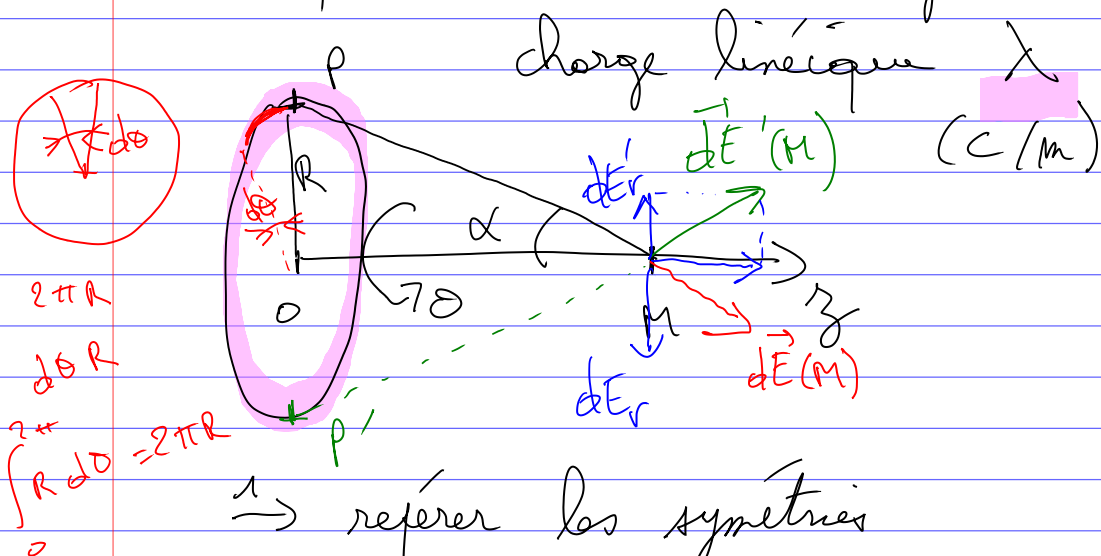 charge linéique λ
(C/m)
P
dθ
R
dθ
α
dE'r
dE'(M)
θ
O
M
z
dEr
dE(M)
2πR
dθ R
∫₀^2π R dθ = 2πR
P'
1 → repérer les symétries